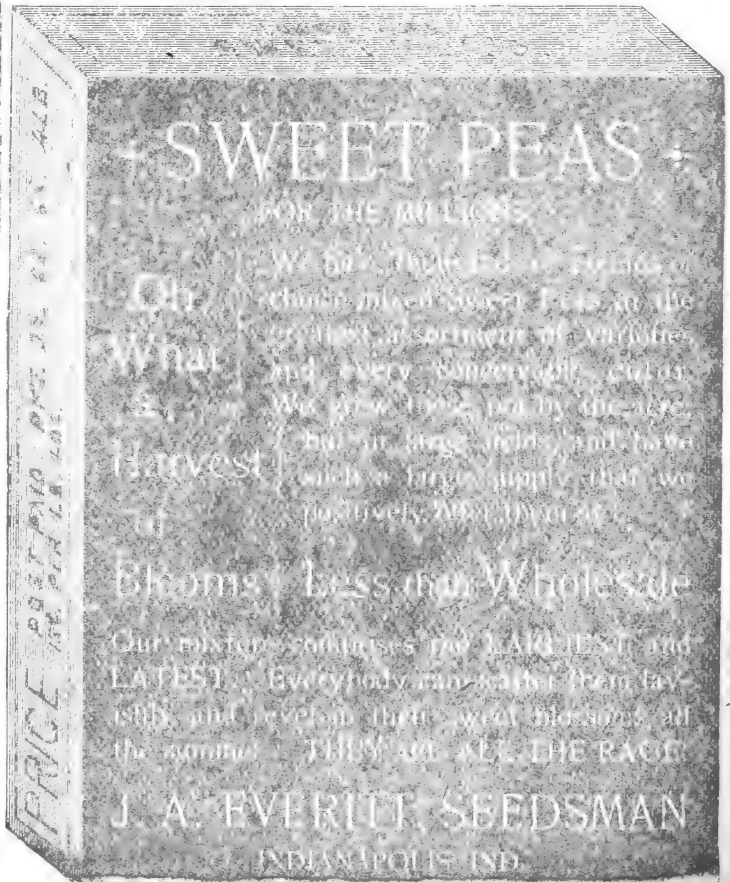 SWEET PEAS
FOR THE MILLIONS
Oh
What
a
Harvest
of
Blooms
We have Hundreds of Pounds of
choice mixed Sweet Peas in the
greatest assortment of varieties,
and every conceivable color.
We grow these not by the acre,
but in large fields, and have
such a large supply that we
positively offer them at
Less than Wholesale
Our mixture comprises the EARLIEST and
LATEST. Everybody can scatter them lav-
ishly, and revel in their sweet blossoms all
the summer. THEY ARE ALL THE RAGE.
J. A. EVERITT, SEEDSMAN
INDIANAPOLIS IND.
PRICE POST PAID